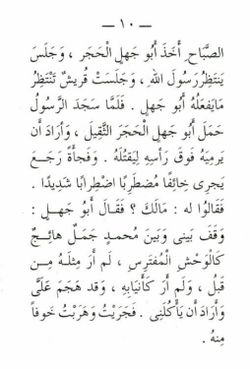 — ١٠ —
الصَّبَاحِ أَخَذَ أَبُو جَهلٍ الْحَجَرَ ، وَجَلَسَ
يَنتَظِرُ رَسُولَ اللهِ ، وَجَلَسَتْ قُرَيشٌ تَنْتَظِرُ
مَا يَفعَلُهُ أَبُو جَهلٍ . فَلَمَّا سَجَدَ الرَّسُولُ
حَمَلَ أَبُو جَهلٍ الْحَجَرَ الثَّقِيلَ ، وَأَرَادَ أَن
يَرمِيَهُ فَوقَ رَأسِهِ لِيَقتُلَهُ . وَفَجأَةً رَجَعَ
يَجرِى خَائِفًا مُضطَرِبًا اضْطِرَابًا شَدِيدًا .
فَقَالُوا له : مَالَكَ ؟ فَقَالَ أَبُو جَهلٍ :
وَقَفَ بَينِى وَبَينَ مُحمدٍ جَمَلٌ هائِجٌ
كالْوَحْشِ الْمُفتَرِسِ ، لَم أَرَ مِثلَهُ مِن
قَبلُ ، وَلَم أَرَ كَأَنيَابِهِ ، وَقَد هَجَمَ عَلَىَّ
وَأَرَادَ أَن يَأْكُلَنِى . فَجَرَيْتُ وَهَرَبْتُ خَوفاً
مِنهُ .